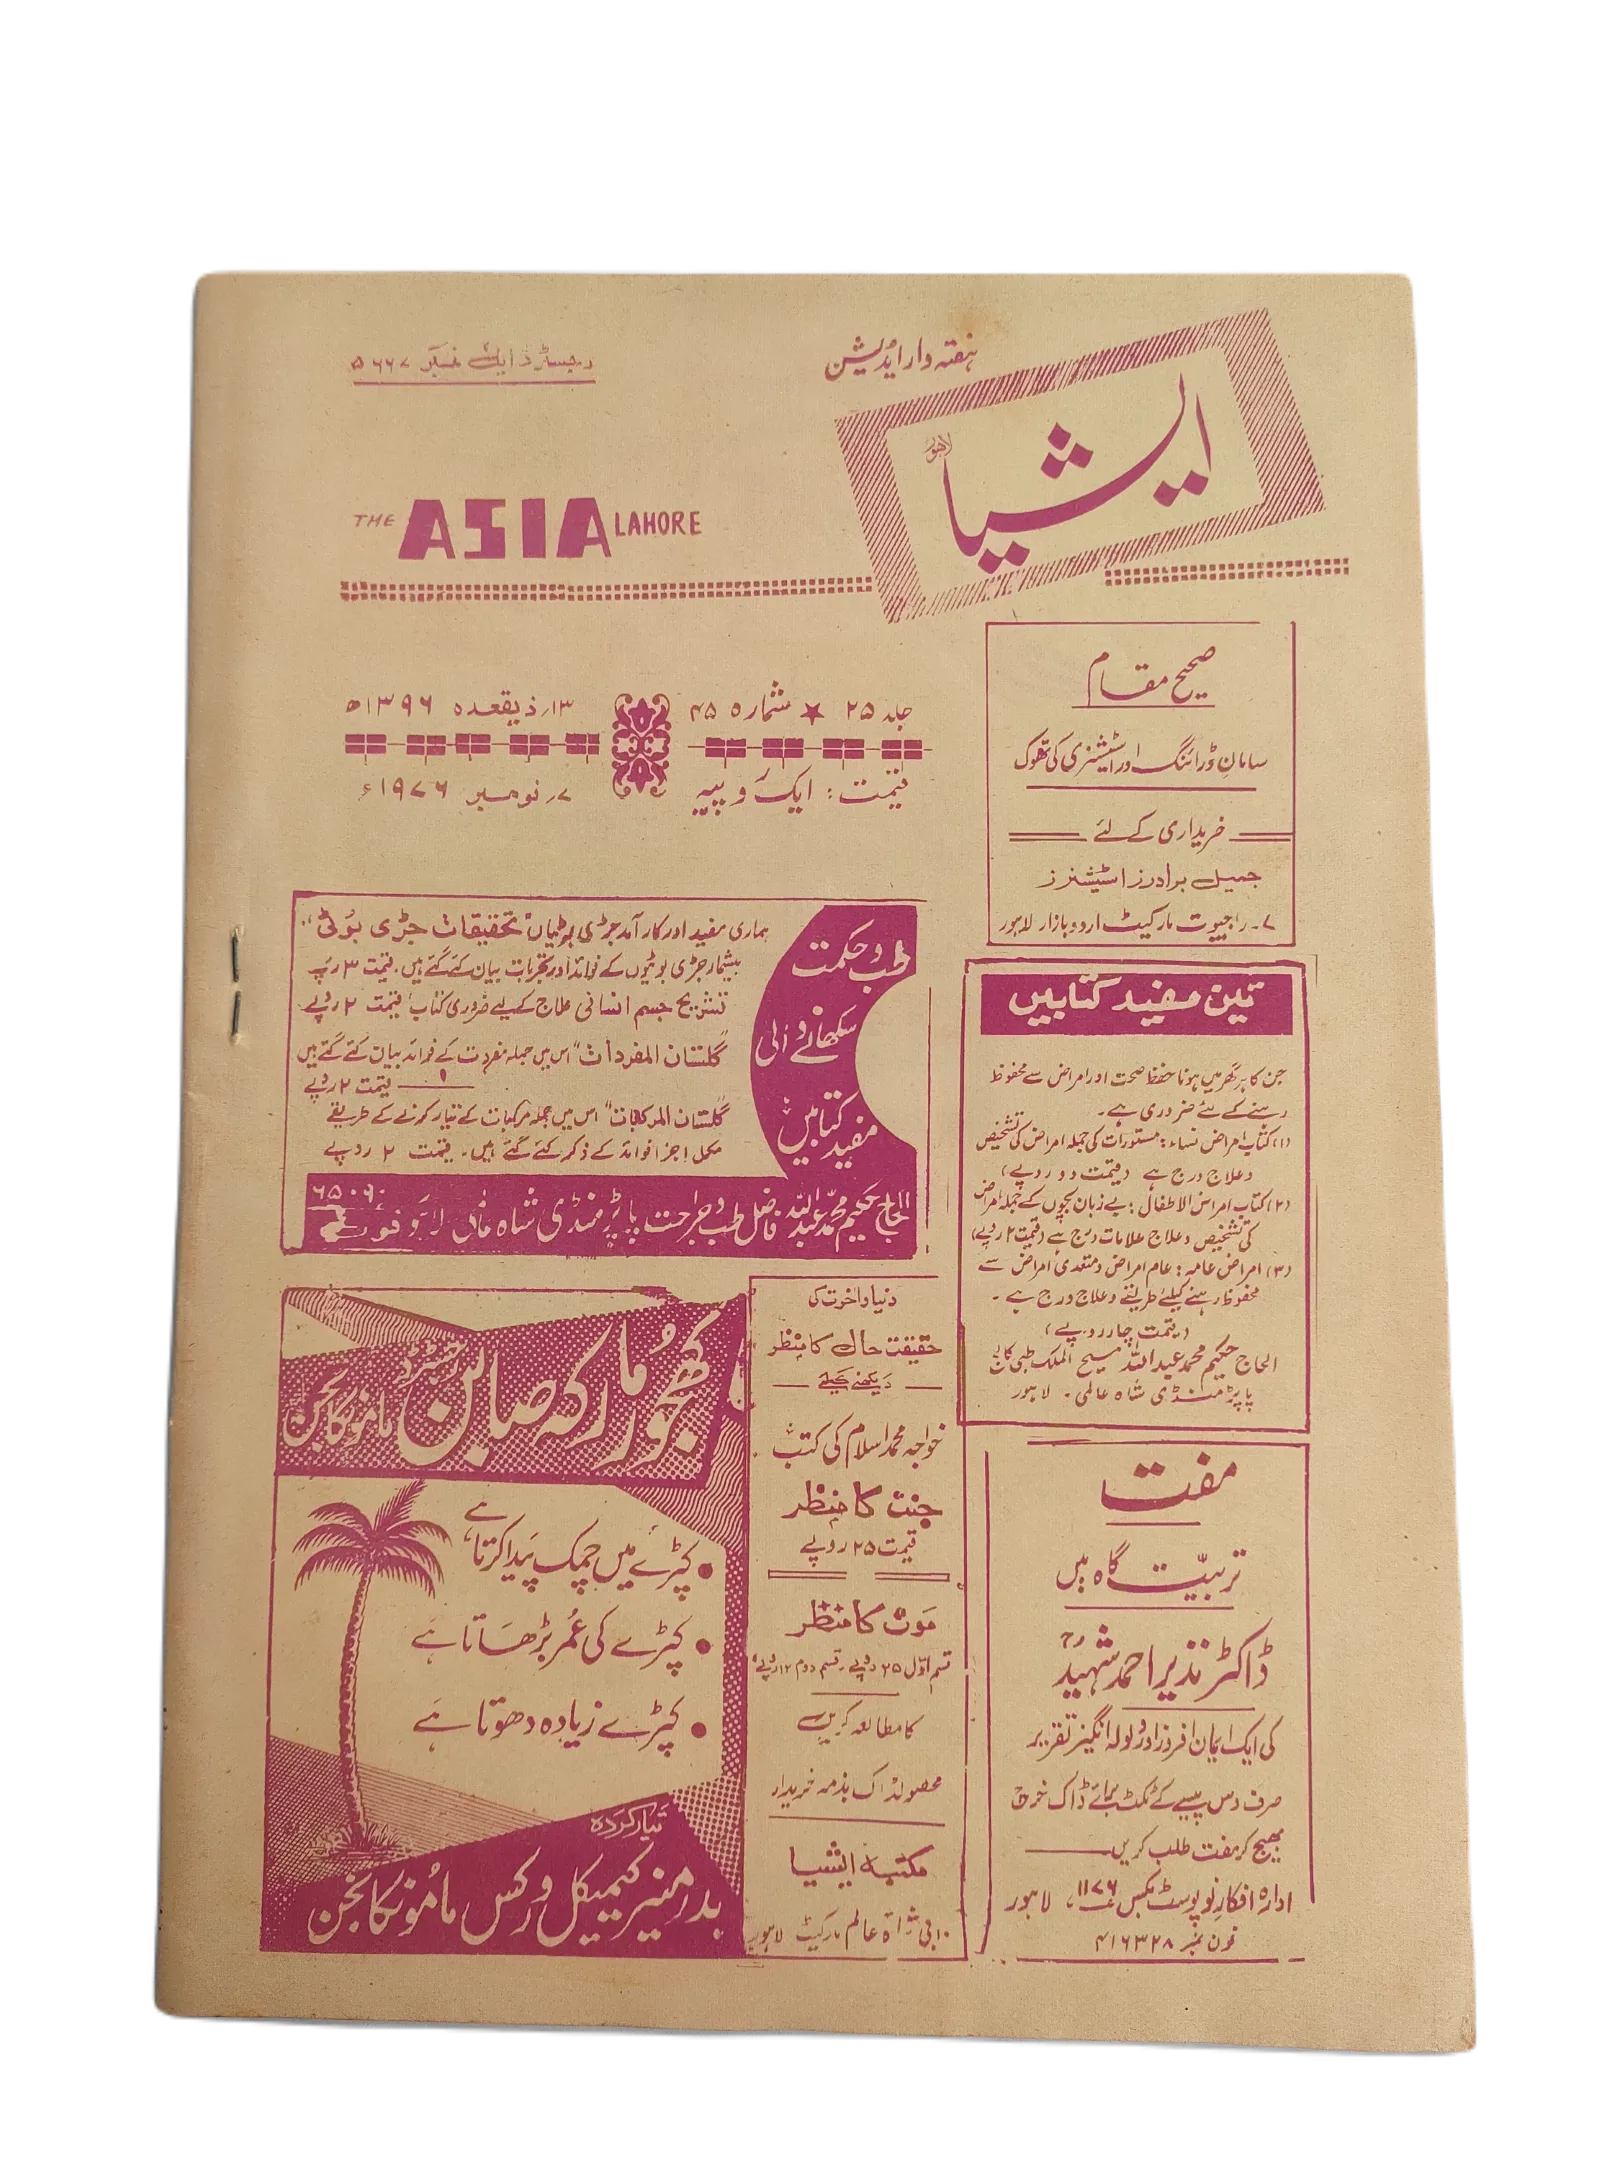 رجسٹرڈ ایل نمبر ۵۶۶۷
ہفتہ وار ایڈیشن
ایشیا
لاہور
THE ASIA LAHORE
جلد ۲۵ ★ شمارہ ۴۵
۱۳؍ ذیقعدہ ۱۳۹۶ھ
قیمت: ایک روپیہ
۷؍ نومبر ۱۹۷۶ء
صحیح مقام
سامان ڈرائنگ اور اسٹیشنری کی تھوک
خریداری کے لئے
جمیل برادرز اسٹیشنرز
۷۔ راجپوت مارکیٹ اردو بازار لاہور
طب و حکمت
سکھانے والی
مفید کتابیں
ہماری مفید اور کارآمد جڑی بوٹیاں "تحقیقات جڑی بوٹی"
بیشمار جڑی بوٹیوں کے فوائد اور تجربات بیان کئے گئے ہیں۔ قیمت ۳ روپے
تشریح جسم انسانی علاج کیلئے ضروری کتاب قیمت ۲ روپے
"گلستان المفردات" اس میں جملہ مفردات کے فوائد بیان کئے گئے ہیں
قیمت ۲ روپے
"گلستان المرکبات" اس میں جملہ مرکبات کے تیار کرنے کے طریقے
مکمل اجزا فوائد کے ذکر کئے گئے ہیں۔ قیمت ۲ روپے
الحاج حکیم محمد عبداللہ فاضل طب و جراحت پاپڑ منڈی شاہ عالمی لاہور فون
۶۵۰۹۰
تین مفید کتابیں
جن کا ہر گھر میں ہونا حفظ صحت اور امراض سے محفوظ
رہنے کے لئے ضروری ہے۔
(۱) کتاب امراض نساء: مستورات کی جملہ امراض کی تشخیص
و علاج درج ہے (قیمت دو روپے)
(۲) کتاب امراض الاطفال: بے زبان بچوں کے جملہ امراض
کی تشخیص و علاج علامات درج ہے (قیمت ۲ روپے)
(۳) امراض عامہ: عام امراض و متعدی امراض سے
محفوظ رہنے کیلئے طریقے و علاج درج ہے۔
(قیمت چار روپے)
الحاج حکیم محمد عبداللہ مسیح الملک طبی کالج
پاپڑ منڈی شاہ عالمی۔ لاہور
کھجور مارکہ صابن
رجسٹرڈ
ماموں کانجن
• کپڑے میں چمک پیدا کرتا ہے
• کپڑے کی عمر بڑھاتا ہے
• کپڑے زیادہ دھوتا ہے
تیار کردہ
بدر منیر کیمیکل ورکس ماموں کانجن
دنیا و آخرت کی
حقیقت حال کا منظر
دیکھنے کیلئے
خواجہ محمد اسلام کی کتب
جنت کا منظر
قیمت ۲۵ روپے
موت کا منظر
قسم اوّل ۲۵ روپے۔ قسم دوم ۱۲ روپے
کا مطالعہ کریں
محصولڈاک بذمہ خریدار
مکتبہ ایشیا
۱۰ بی شاہ عالم مارکیٹ لاہور
مفت
تربیت گاہ میں
ڈاکٹر نذیر احمد شہیدؒ
کی ایک ایمان افروز اور ولولہ انگیز تقریر
صرف دس پیسے کے ٹکٹ برائے ڈاک خرچ
بھیج کر مفت طلب کریں
ادارہ افکار نو پوسٹ بکس ۱۱۷۶، لاہور
فون نمبر ۴۱۶۳۲۸